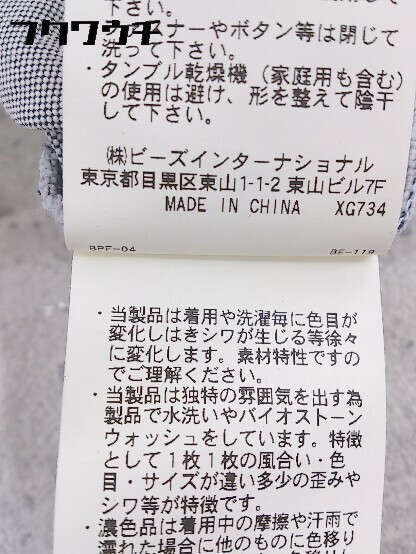 フクワウチ
ファスナーやボタン等は閉じて
洗って下さい。
・タンブル乾燥機（家庭用も含む）
の使用は避け、形を整えて陰干
して下さい。
㈱ビーズインターナショナル
東京都目黒区東山1-1-2 東山ビル7F
MADE IN CHINA XG734
BPF-04 BE-119
・当製品は着用や洗濯毎に色目が
変化しはきシワが生じる等徐々
に変化します。素材特性ですの
でご理解ください。
・当製品は独特の雰囲気を出す為
製品で水洗いやバイオストーン
ウォッシュをしています。特徴
として１枚１枚の風合い・色
目・サイズが違い多少の歪みや
シワ等が特徴です。
・濃色品は着用中の摩擦や汗雨で
濡れた場合に他のものに色移り